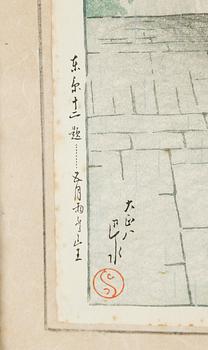 東京十二題……五月雨ふる山王
大正八
巴水